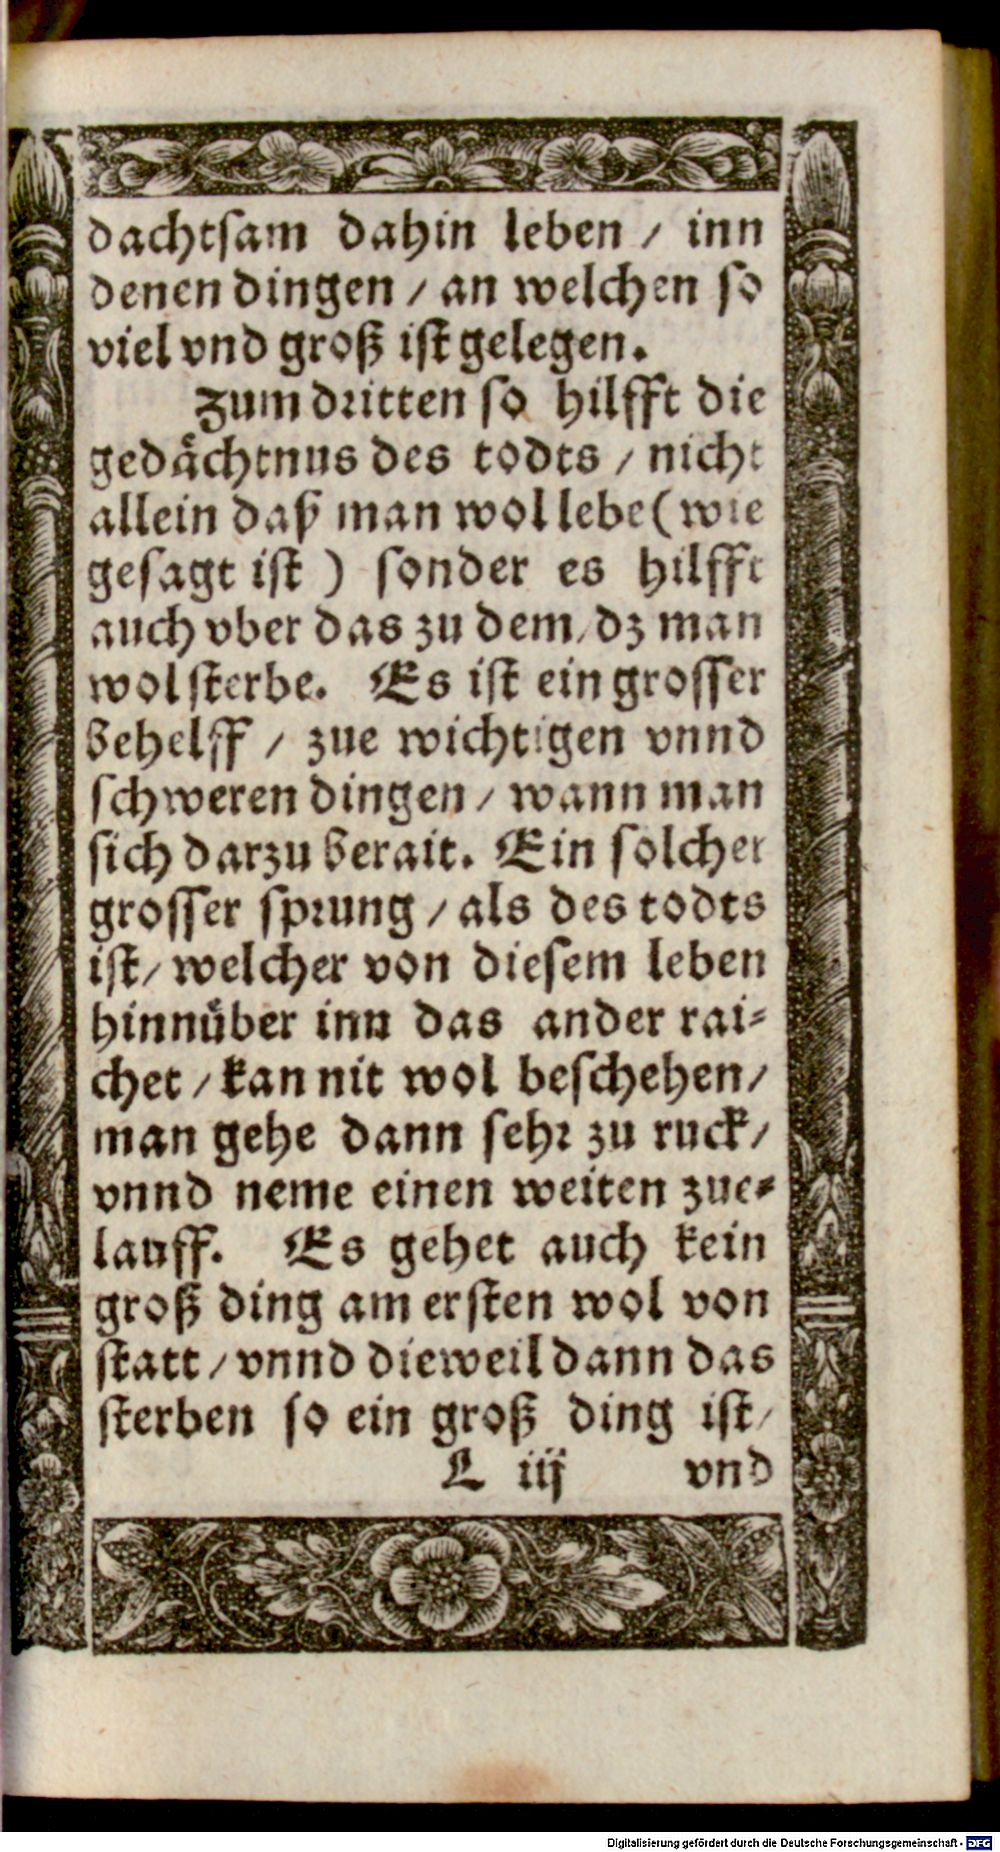 dachtsam dahin leben / inn
denen dingen / an welchen so
viel vnd groß ist gelegen.
Zum dritten so hilfft die
gedächtnus des todts / nicht
allein daß man wol lebe (wie
gesagt ist) sonder es hilfft
auch vber das zu dem / dz man
wol sterbe. Es ist ein grosser
behelff / zue wichtigen vnnd
schweren dingen / wann man
sich darzu berait. Ein solcher
grosser sprung / als des todts
ist / welcher von diesem leben
hinnüber inn das ander rai-
chet / kan nit wol beschehen /
man gehe dann sehr zu ruck /
vnnd neme einen weiten zue-
lauff. Es gehet auch kein
groß ding am ersten wol von
statt / vnnd dieweil dann das
sterben so ein groß ding ist /
L iij vnd
Digitalisierung gefördert durch die Deutsche Forschungsgemeinschaft - DFG